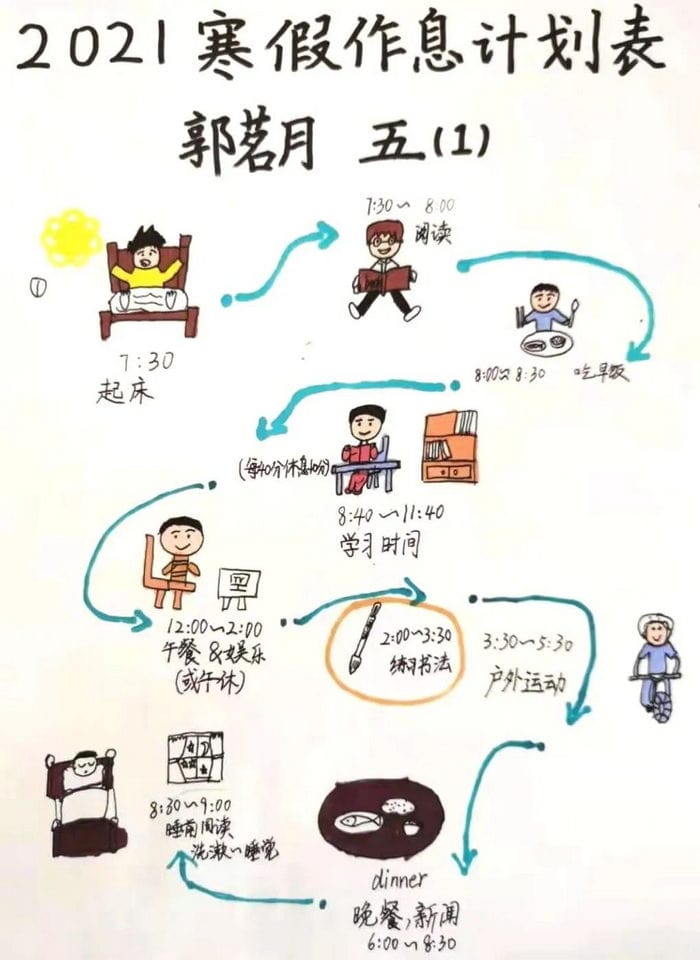 2021寒假作息计划表
郭茗月 五(1)
①
7:30
起床
7:30~8:00
阅读
8:00~8:30 吃早饭
(每40分休息10分)
8:40~11:40
学习时间
12:00~2:00
午餐&娱乐
(或午休)
2:00~3:30
练习书法
3:30~5:30
户外运动
dinner
晚餐,新闻
6:00~8:30
8:30~9:00
睡前阅读
洗漱~睡觉